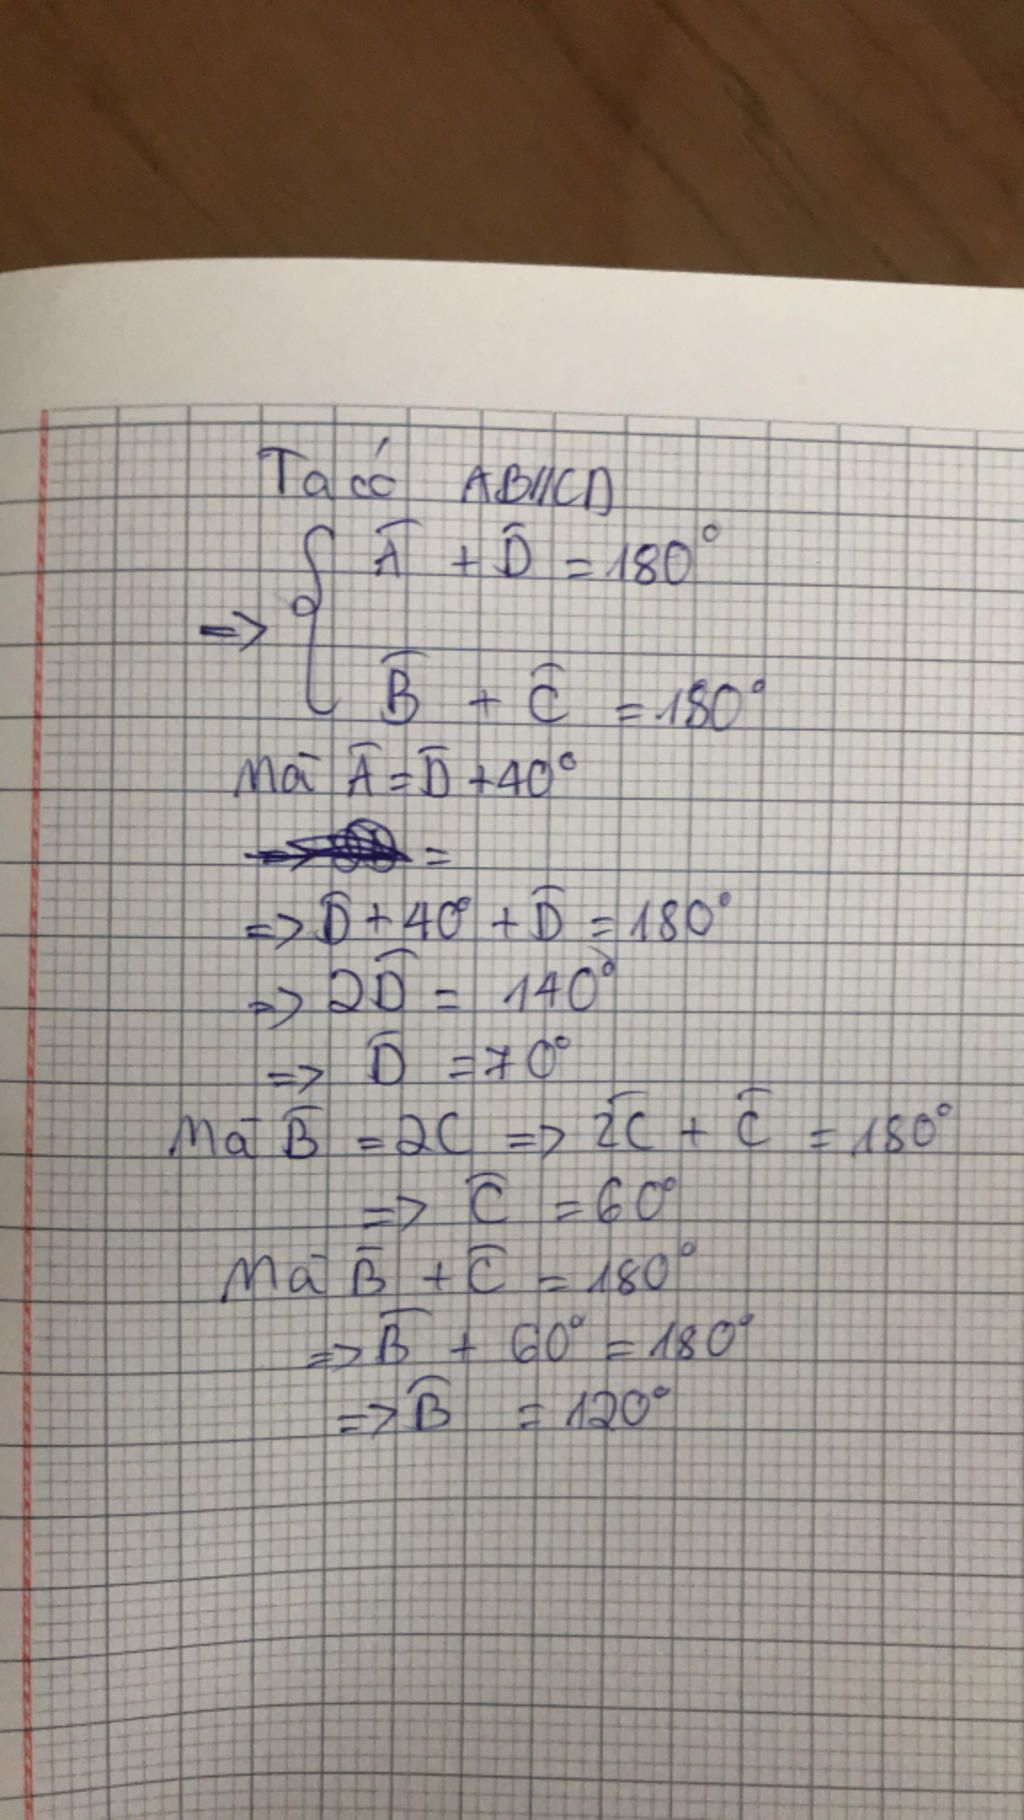 Ta có AB//CD
=> { Â + D̂ = 180°
B̂ + Ĉ = 180°
Mà Â = D̂ + 40°
=
=> D̂ + 40° + D̂ = 180°
=> 2D̂ = 140°
=> D̂ = 70°
Mà B̂ = 2C => 2Ĉ + Ĉ = 180°
=> Ĉ = 60°
Mà B̂ + Ĉ = 180°
=> B̂ + 60° = 180°
=> B̂ = 120°